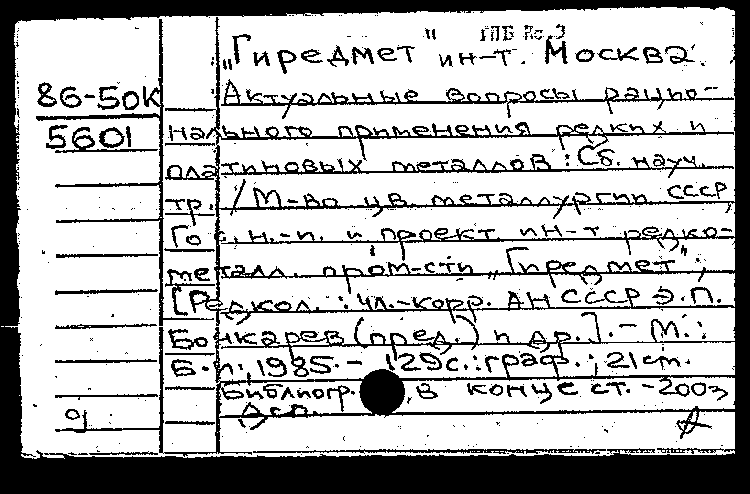 ГПБ Rc.3
„Гиредмет" ин-т. Москва.
86-50к
5601
Актуальные вопросы рацио-
нального применения редких и
платиновых металлов: Сб. науч.
тр. / М-во цв. металлургии СССР,
Гос. н.-и. и проект. ин-т редко-
металл. пром-сти „Гиредмет";
[Редкол.: чл.-корр. АН СССР Э.П.
Бонкарев (пред.) и др.]. - М.:
Б.и., 1985. - 129с.: граф.; 21см.
Библиогр. в конце ст. - 200э
9